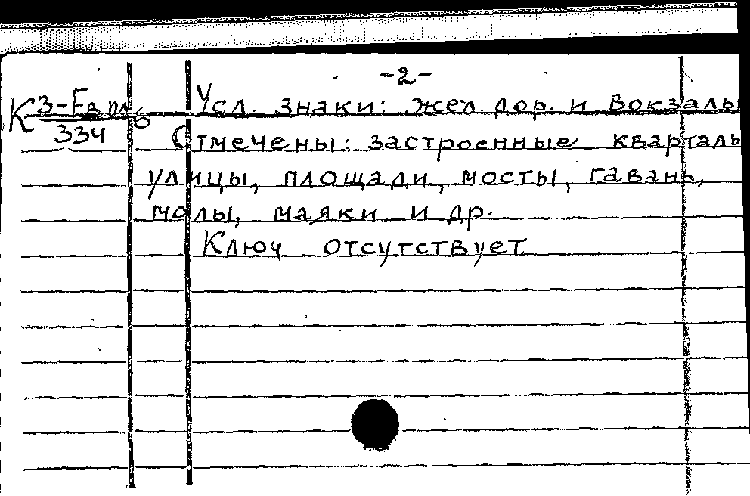 -2-
К 3-Евр пл. 6
334
Усл. знаки: жел дор. и вокзалы
Отмечены: застроенные кварталы
улицы, площади, мосты, гавань,
молы, маяки и др.
Ключ отсутствует